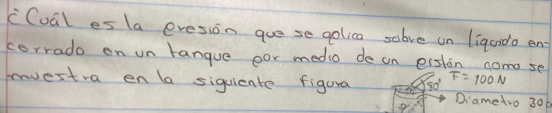 ¿Cuál es la presión que se aplica sobre un líquido en-
cerrado en un tanque por medio de un pistón como se
muestra en la siguiente figura
F = 100 N
80°
Diametro 30